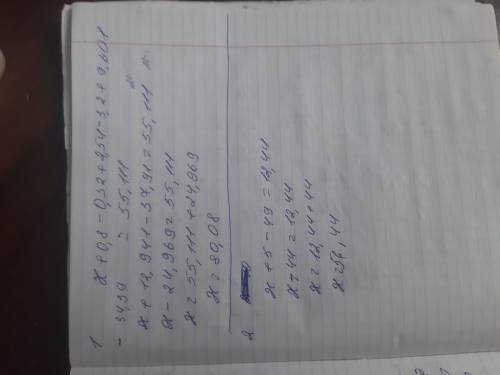 1 x+0,8-0,32+2,54-3,2+9,601
-34,39 = 55,111
x+12,941-37,91=55,111
x-24,969=55,111
x=55,111+24,969
x=80,08
2
x+5-49=12,44
x-44=12,44
x=12,44+44
x=56,44